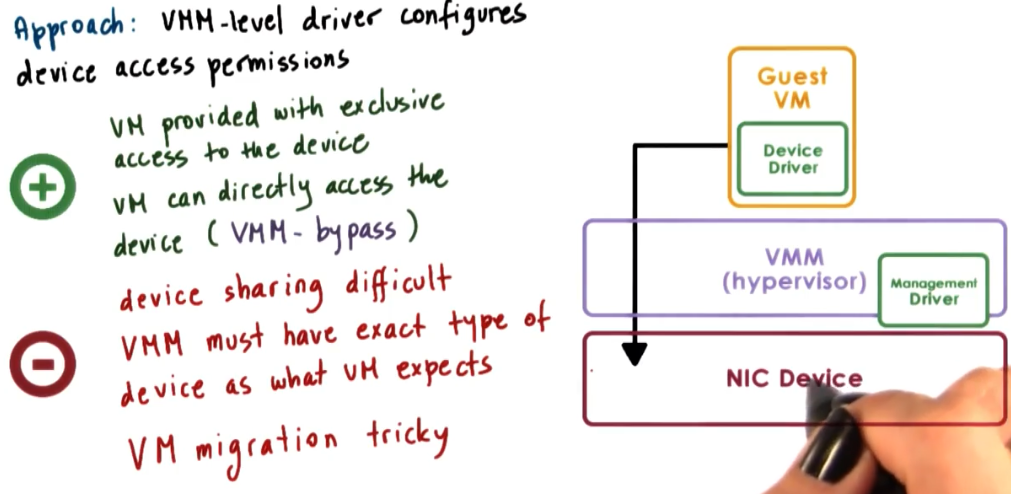 Approach: VMM-level driver configures
device access permissions
VM provided with exclusive
access to the device
VM can directly access the
device (VMM-bypass)
device sharing difficult
VMM must have exact type of
device as what VM expects
VM migration tricky
Guest
VM
Device
Driver
VMM
(hypervisor)
Management
Driver
NIC Device